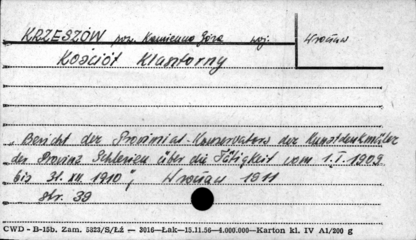 KRZESZÓW pow. Kamienna Góra woj. Wrocław
Kościół Klasztorny
„Bericht der Provinzial-Konservators der Kunstdenkmäler
der Provinz Schlesien über die Tätigkeit vom 1.I.1909
bis 31.XII.1910", Wrocław 1911
str. 39
CWD - B-15b. Zam. 5823/S/ŁŻ — 3016—Łak—15.11.56—4.000.000—Karton kl. IV A1/200 g